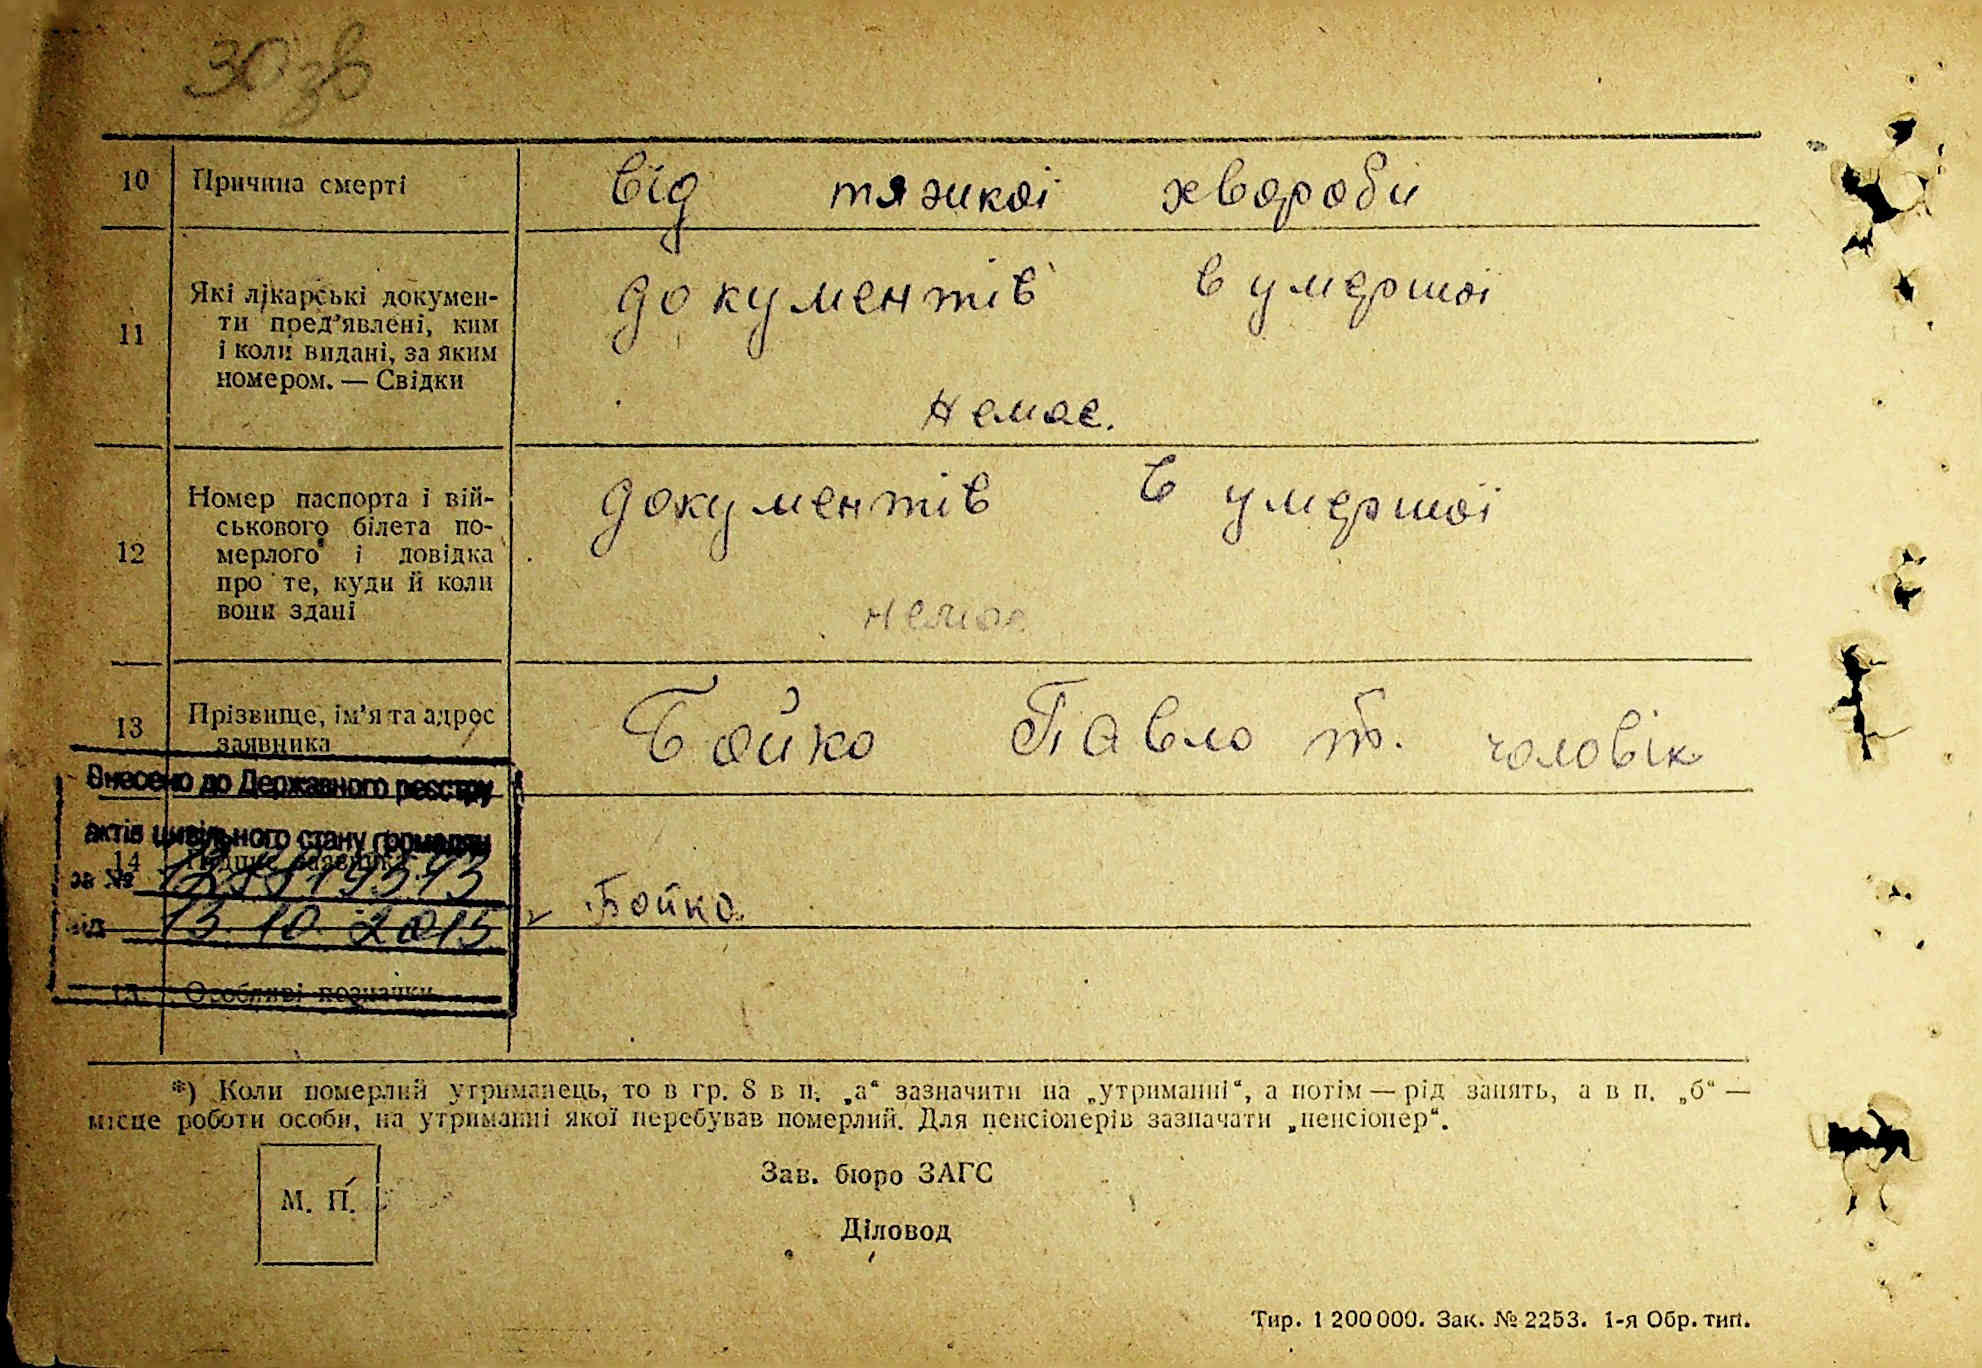 30 зв
10 Причина смерті від тяжкої хвороби
11 Які лікарські докумен-
ти пред'явлені, ким
і коли видані, за яким
номером. — Свідки
документів в умершої
немає.
12 Номер паспорта і вій-
ськового білета по-
мерлого і довідка
про те, куди й коли
вони здані
документів в умершої
немає
13 Прізвище, ім'я та адрес
заявника
Бойко Павло т. чоловік
Внесено до Державного реєстру
актів цивільного стану громадян
14 Підпис заявника
за №
від 13.10.2015
Бойко
15 Особливі позначки
*) Коли померлий утриманець, то в гр. 8 в п. „а“ зазначити на „утриманні“, а потім — рід занять, а в п. „б“ —
місце роботи особи, на утриманні якої перебував померлий. Для пенсіонерів зазначати „пенсіонер“.
Зав. бюро ЗАГС
М. П.
Діловод
Тир. 1 200 000. Зак. № 2253. 1-я Обр. тип.